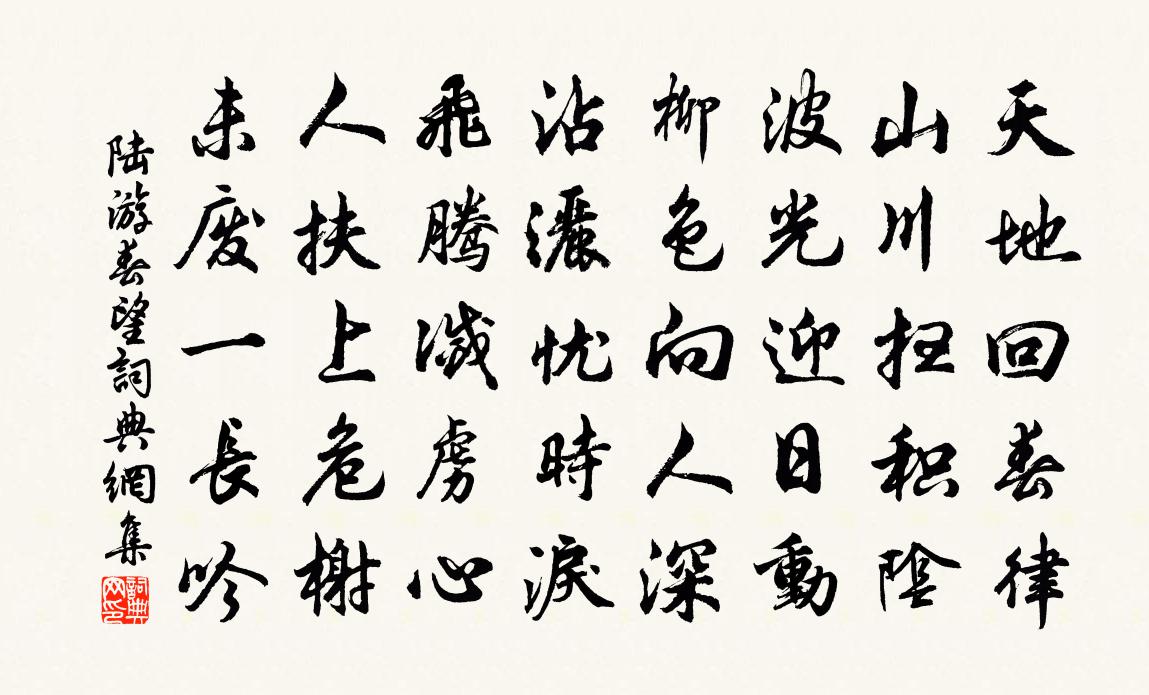 天地回春律
山川扫积陰
波光迎日動
柳色向人深
沾灑忧時淚
飛騰滅虜心
人扶上危榭
未废一長吟
陆游春望詞典網集
詞典網印